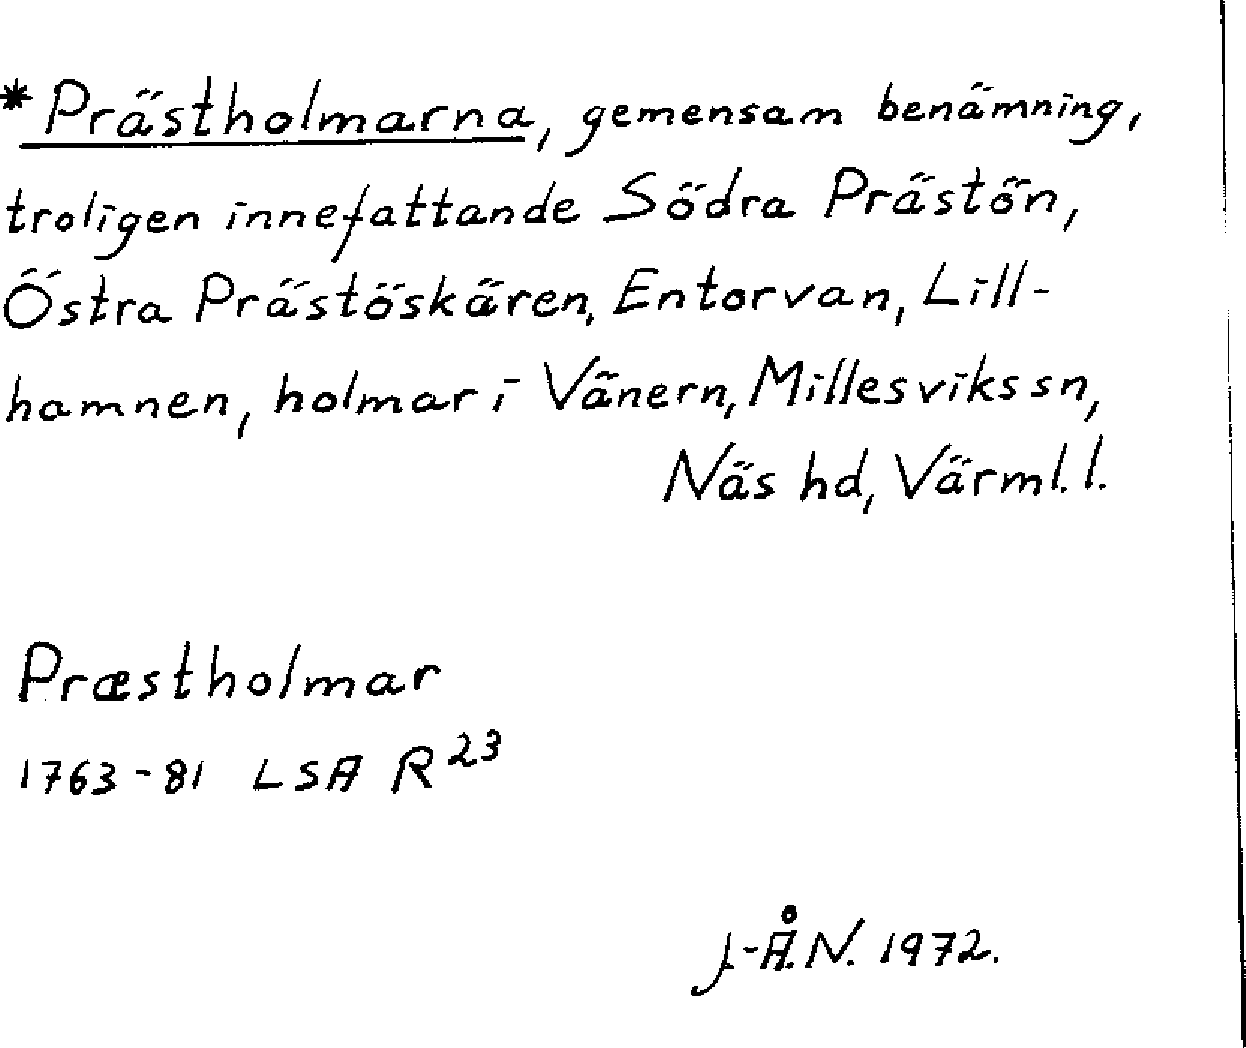 *Prästholmarna, gemensam benämning,
troligen innefattande Södra Prästön,
Östra Prästöskären, Entorvan, Lill-
hamnen, holmar i Vänern, Millesviks sn,
Näs hd, Värml. l.
Præstholmar
1763-81 LSA R 23
J-Å.N. 1972.